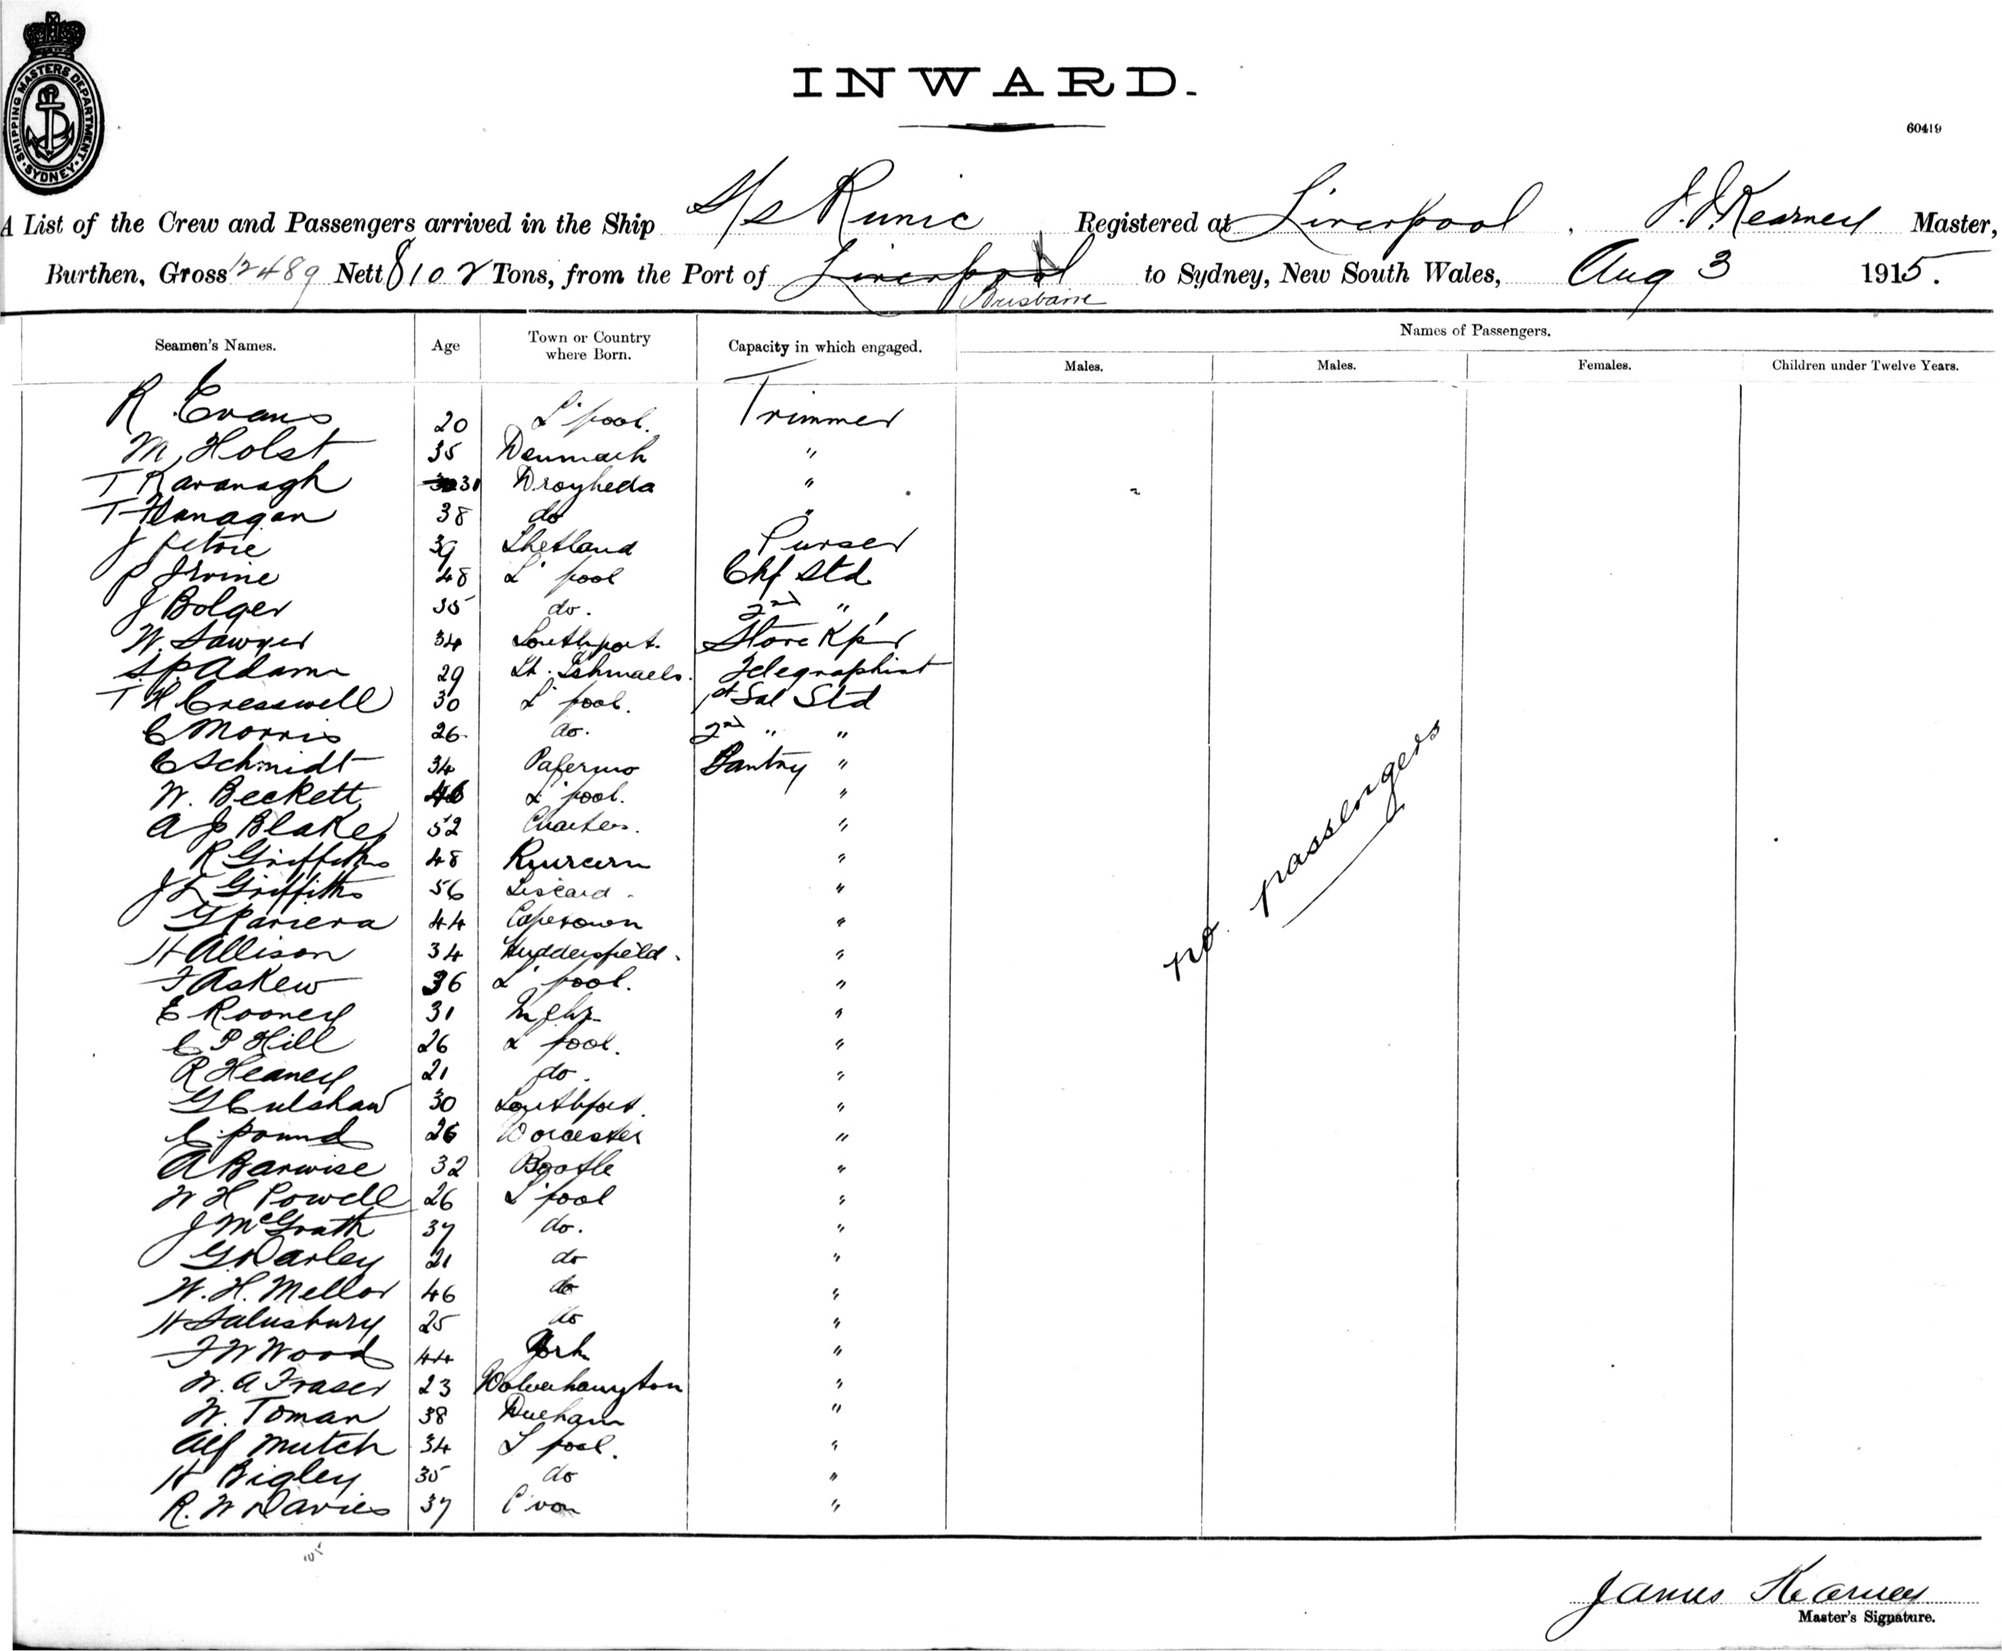 SHIPPING MASTERS DEPARTMENT. SYDNEY
INWARD.
60419
A List of the Crew and Passengers arrived in the Ship S/s Runic Registered at Liverpool, J. J. Kearney Master,
Burthen, Gross 12489 Nett 8102 Tons, from the Port of Liverpool Brisbane to Sydney, New South Wales, Aug 3 1915.
Seamen's Names. Age Town or Country where Born. Capacity in which engaged. Names of Passengers.
Males. Males. Females. Children under Twelve Years.
R Evans 20 L'pool. Trimmer
M Holst 35 Denmark "
T Kavanagh 31 Drogheda "
T Flanagan 38 do "
J Petrie 39 Shetland Purser
P Irvine 48 L'pool Chf Std
J Bolger 35 do. 2nd "
W. Sawyer 34 Southport. Store Kp'r
S.P. Adams 29 St. Ishmaels. Telegraphist
T H Cresswell 30 L'pool. 1st Sal Std
C Morris 26. do. 2nd " "
C Schmidt 34 Palermo Pantry "
W. Beckett 46 L'pool. "
A J Blake 52 "
R Griffiths 48 Runcorn "
J L Griffiths 56 Liscard. "
G Pariera 44 Capetown "
H Allison 34 Huddersfield. "
F Askew 36 L'pool. "
E Rooney 31 "
C P Hill 26 L'pool. "
R Heaney 21 do. "
G Culshaw 30 Southport. "
C Pound 26 Worcester "
A Barwise 32 Bootle "
W H Powell 26 L'pool "
J McGrath 37 do. "
G Darley 21 do "
W. H. Mellor 46 do "
H Salusbury 25 do "
F W Wood 44 York "
W. A Fraser 23 Wolverhampton "
W. Toman 38 Durham "
Alf Mutch 34 L'pool. "
H Bigley 35 do "
R. W Davies 37 C'von "
no passengers
105
James Kearney
Master's Signature.